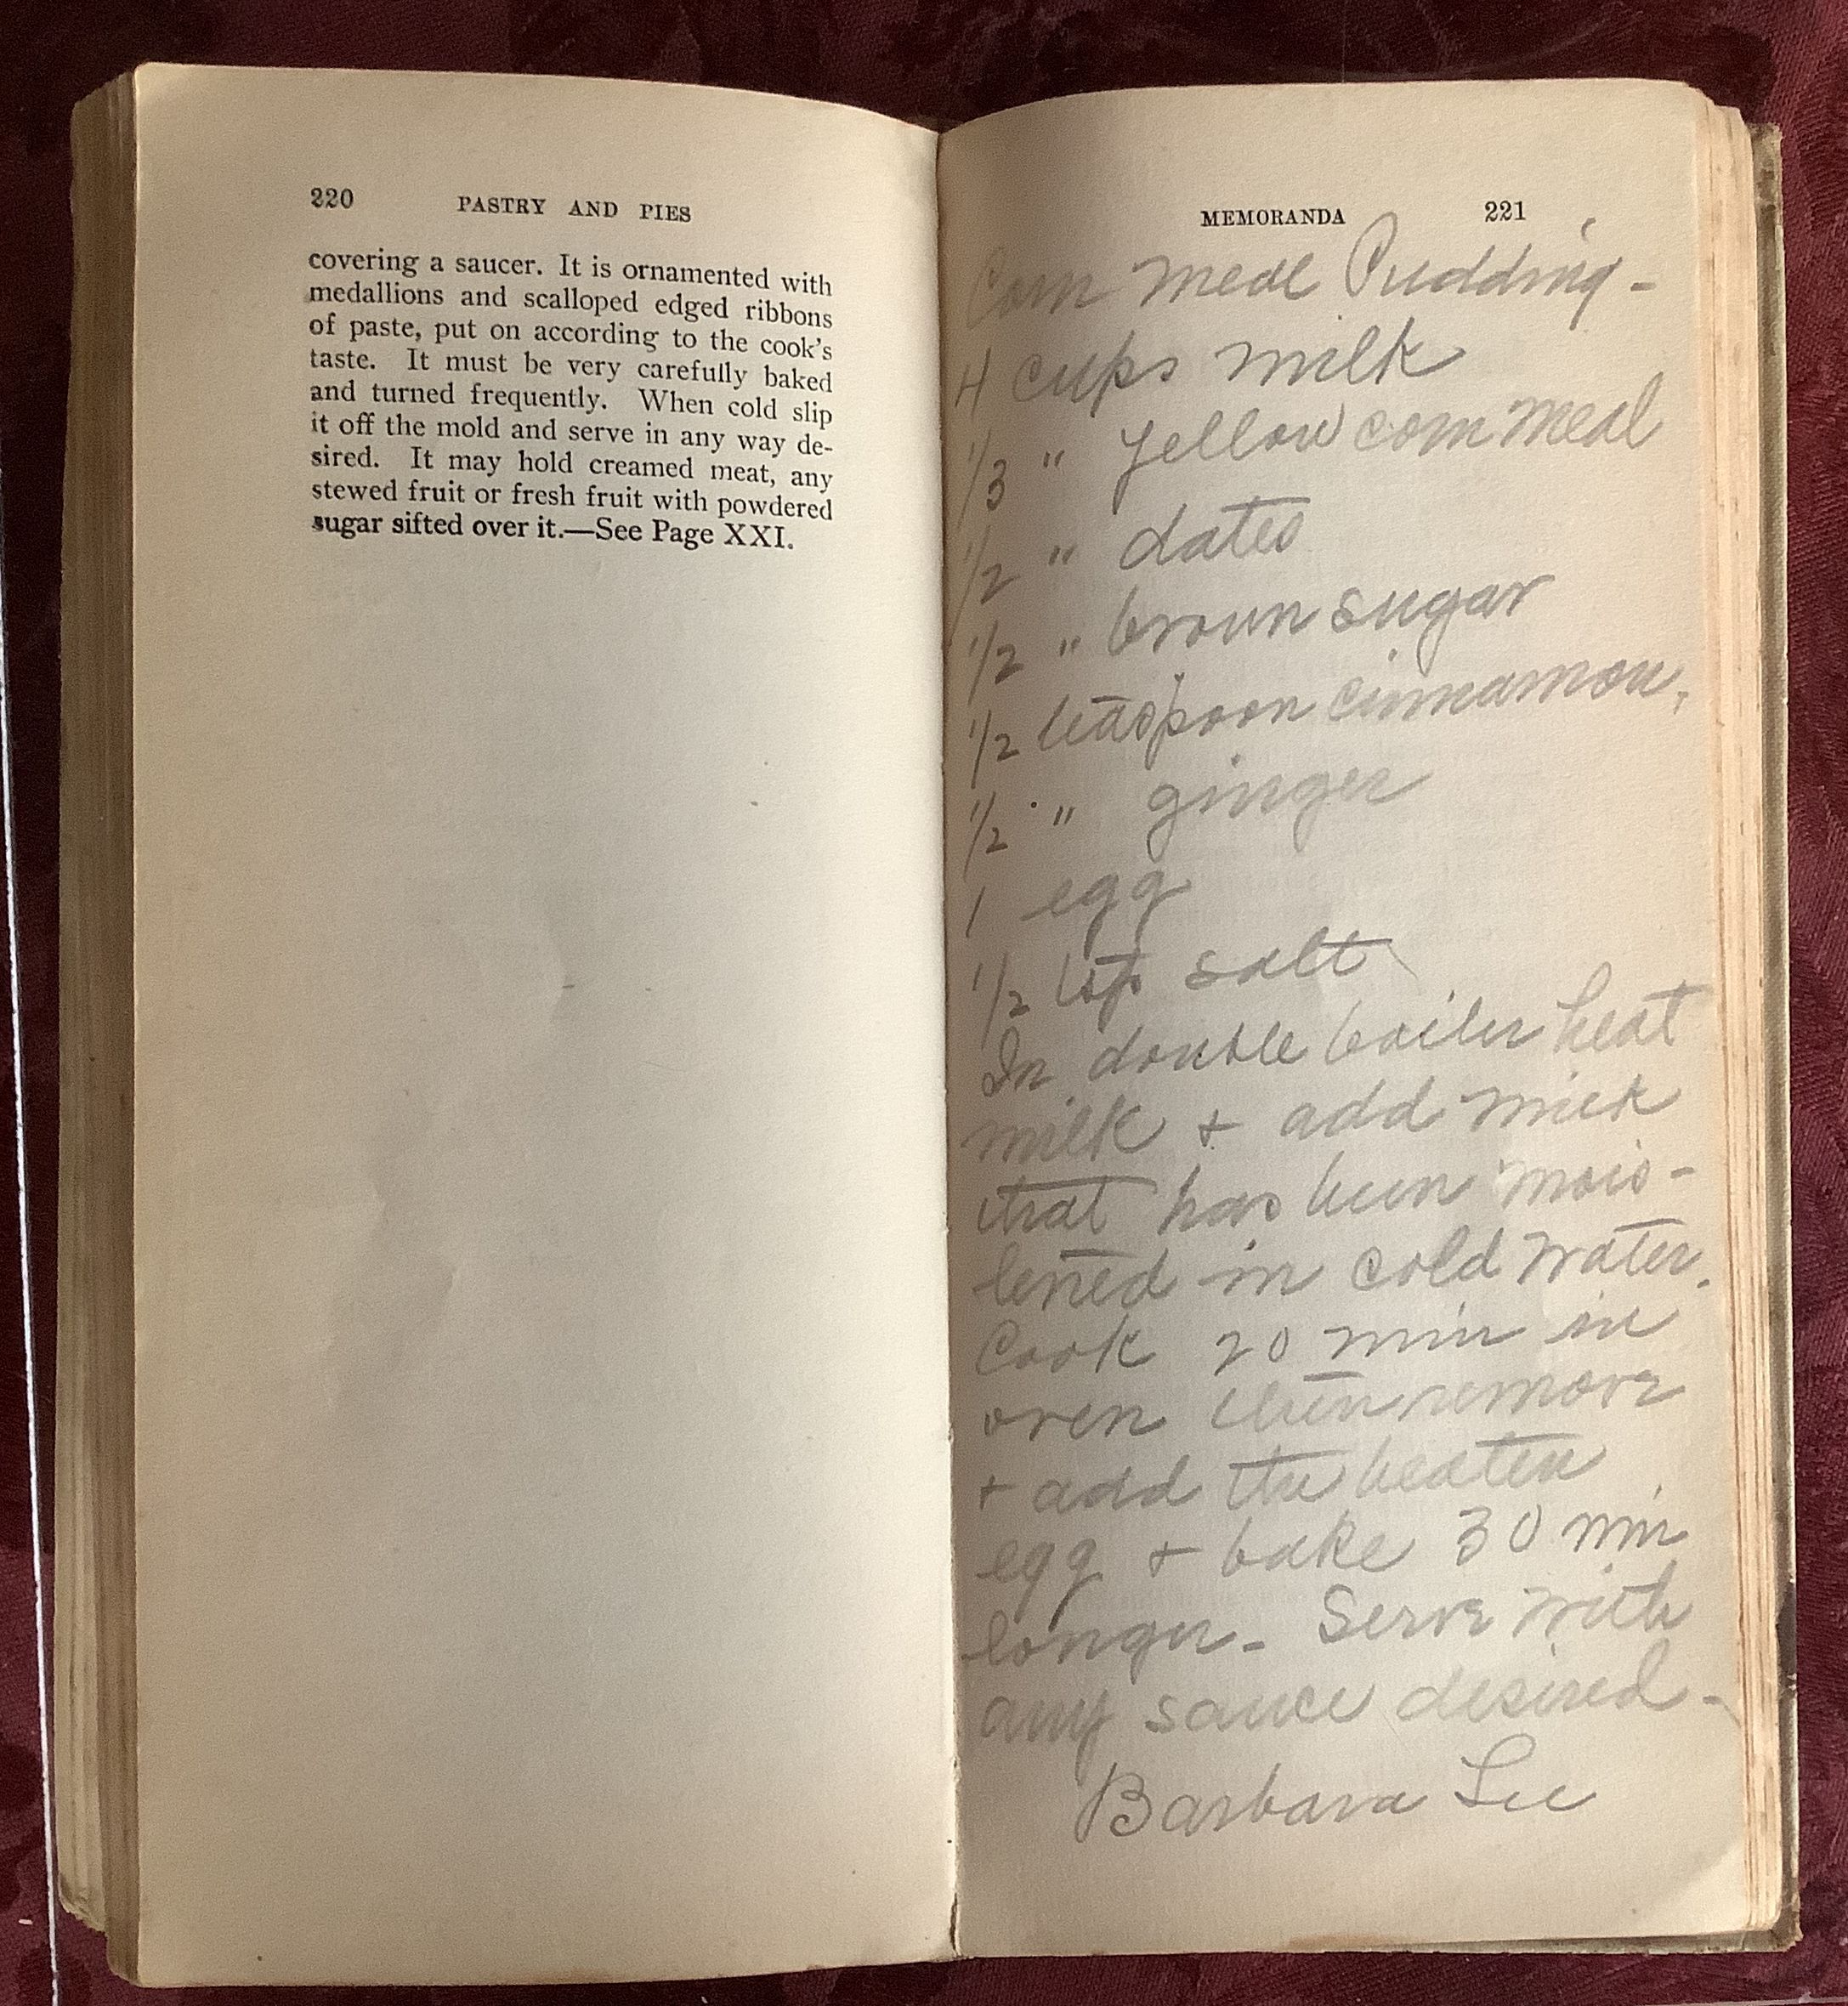 220 PASTRY AND PIES
covering a saucer. It is ornamented with
medallions and scalloped edged ribbons
of paste, put on according to the cook's
taste. It must be very carefully baked
and turned frequently. When cold slip
it off the mold and serve in any way de-
sired. It may hold creamed meat, any
stewed fruit or fresh fruit with powdered
sugar sifted over it.—See Page XXI.
MEMORANDA 221
Corn Meal Pudding -
4 cups milk
1/3 " yellow corn meal
1/2 " dates
1/2 " brown sugar
1/2 teaspoon cinnamon,
1/2 " ginger
1 egg
1/2 tsp salt
In double boiler heat
milk + add milk
that has been mois-
tened in cold water.
Cook 20 min in
oven then remove
+ add the beaten
egg + bake 30 min
longer - Serve with
any sauce desired -
Barbara Lee